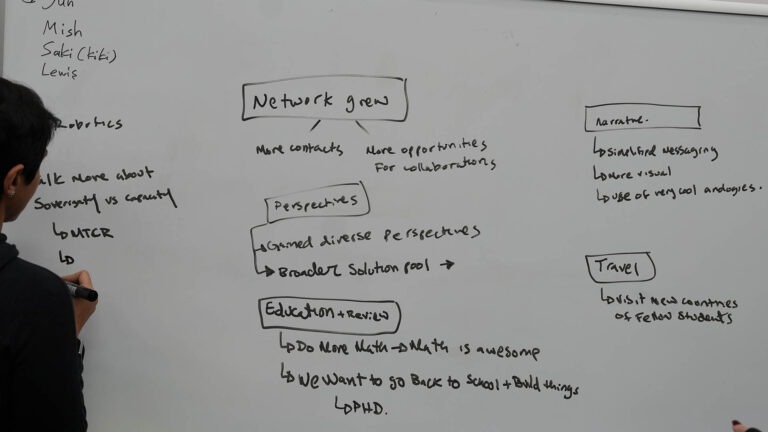 Jun
Mish
Saki (kiki)
Lewis
Robotics
alk more about
Soverignty vs capacity
↳ MTCR
↳
Network grew
More contacts
More opportunities
For collaborations
Perspectives
→ Gained diverse perspectives
→ Broader Solution pool →
Education + Review
↳ Do More Math → Math is awesome
↳ We Want to go Back to School + Build things
↳ PHD.
narrative.
↳ simplified messaging
↳ more visual
↳ use of very cool analogies.
Travel
↳ visit new countries
of Fellow Students